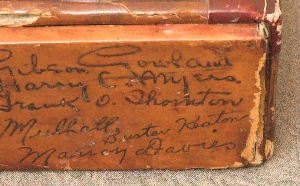 Gibson Gowland
Harry C. Myers
Frank O. Thornton
Mulhall
Buster Keaton
Marion Davies